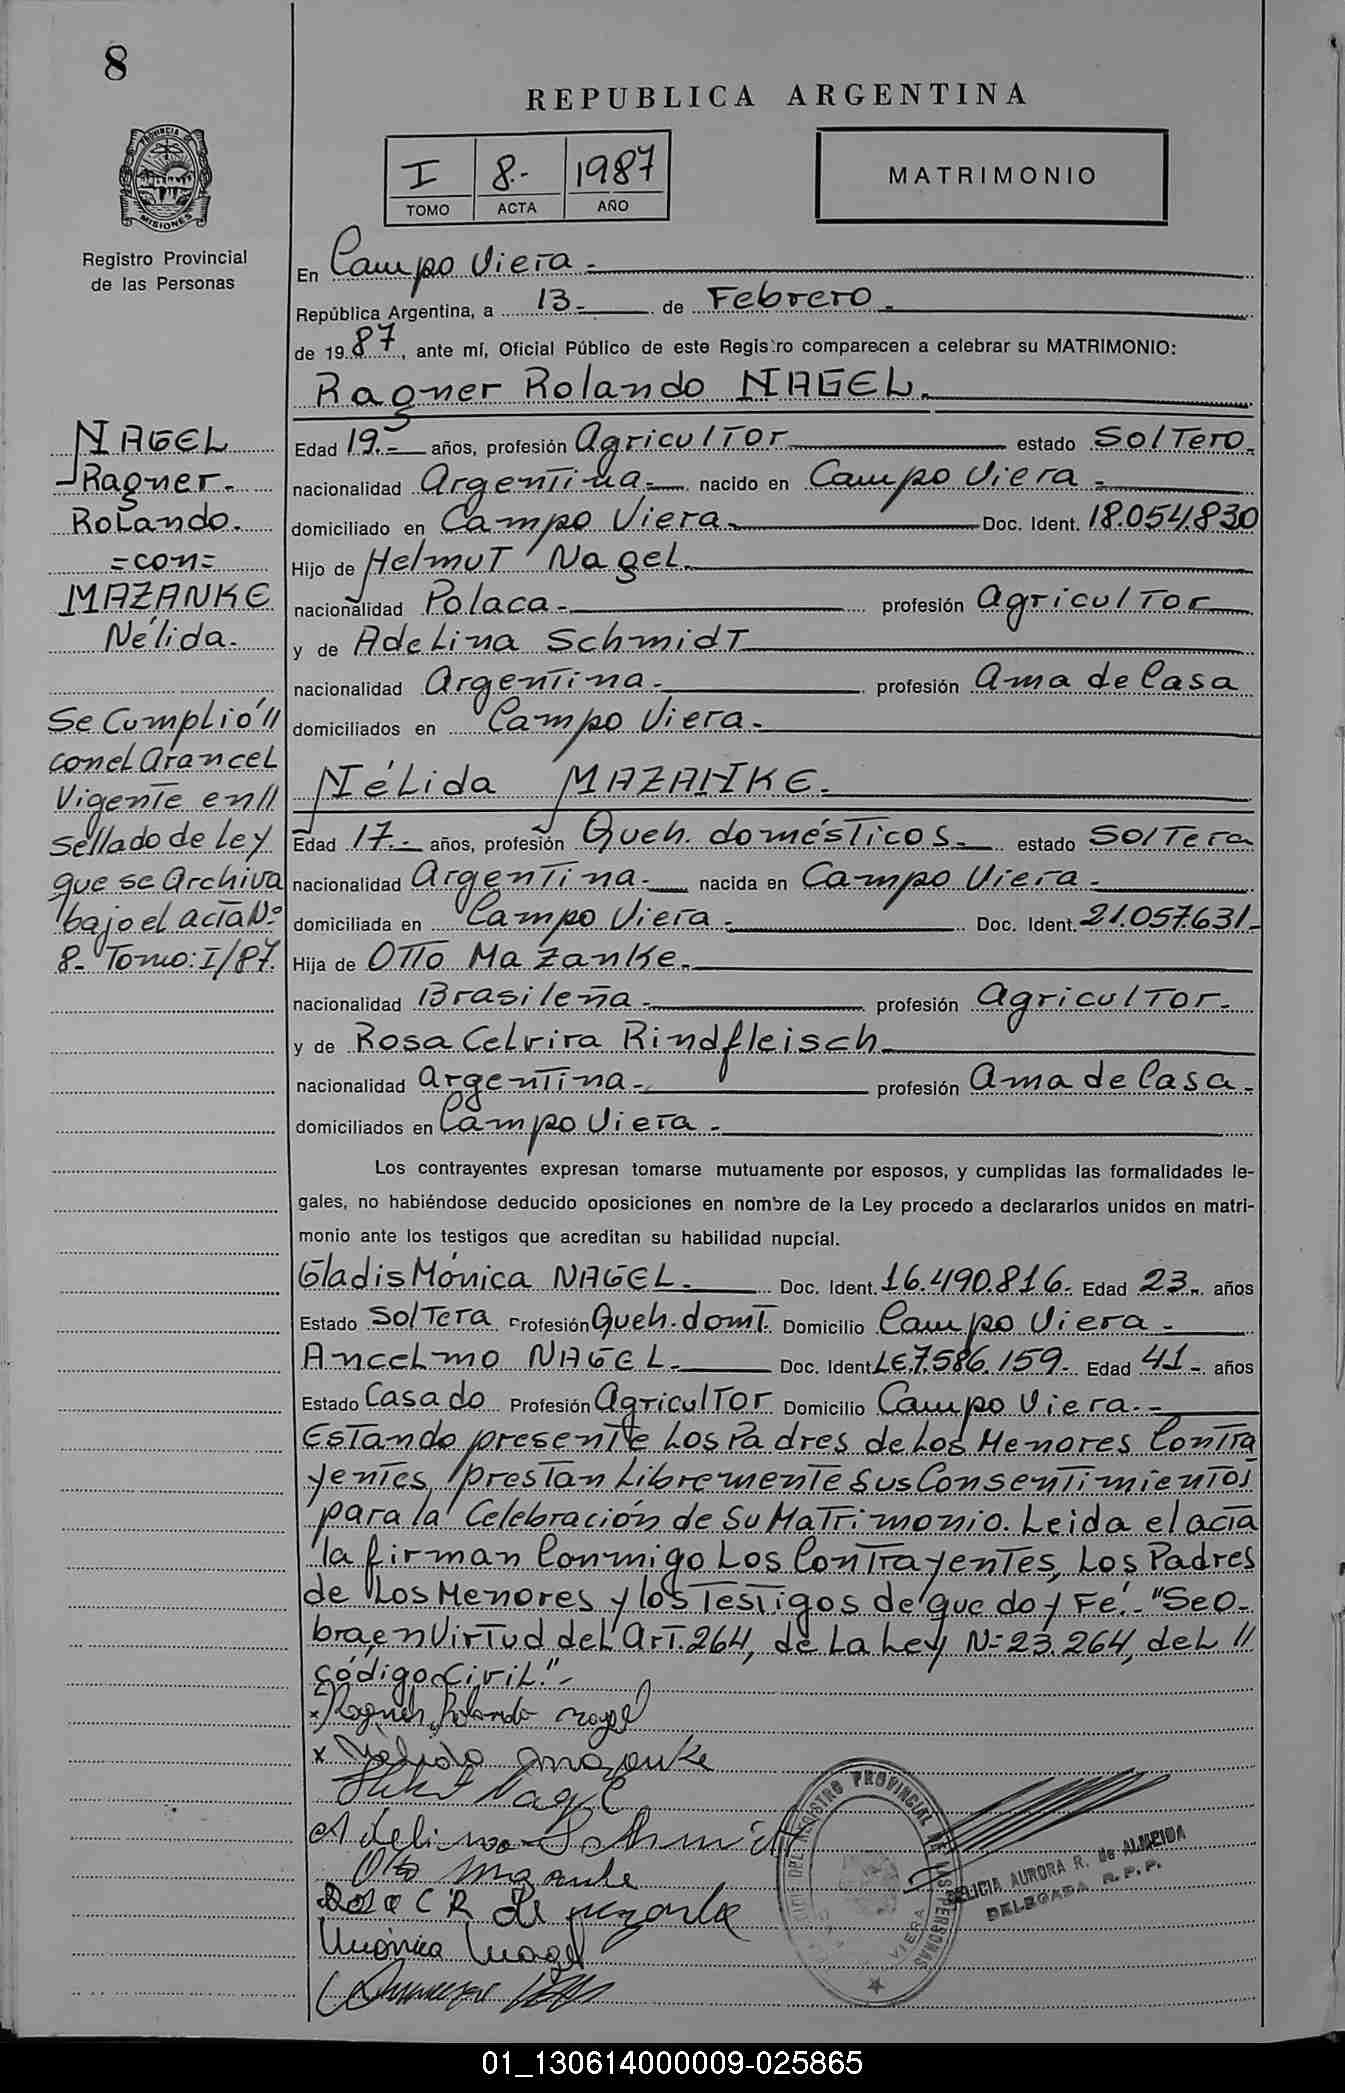 8
REPUBLICA ARGENTINA
I 8.- 1987
TOMO ACTA AÑO
MATRIMONIO
PROVINCIA DE MISIONES
Registro Provincial
de las Personas
En Campo Viera.-
República Argentina, a 13.- de Febrero.-
de 1987, ante mí, Oficial Público de este Registro comparecen a celebrar su MATRIMONIO:
Ragner Rolando NAGEL.
NAGEL
Ragner.-
Rolando.
=con=
MAZANKE
Nélida.-
Se Cumplió//
con el Arancel
Vigente en//
Sellado de Ley
que se Archiva
bajo el acta Nº
8.- Tomo: I/87.
Edad 19.- años, profesión Agricultor estado Soltero.
nacionalidad Argentina.- nacido en Campo Viera.-
domiciliado en Campo Viera.- Doc. Ident. 18.054.830
Hijo de Helmut Nagel.
nacionalidad Polaca.- profesión Agricultor
y de Adelina Schmidt
nacionalidad Argentina.- profesión Ama de Casa
domiciliados en Campo Viera.-
Nélida MAZANKE.
Edad 17.- años, profesión Queh. domésticos.- estado Soltera
nacionalidad Argentina.- nacida en Campo Viera.-
domiciliada en Campo Viera.- Doc. Ident. 21.057.631.-
Hija de Otto Mazanke.
nacionalidad Brasileña.- profesión Agricultor.-
y de Rosa Celvira Rindfleisch
nacionalidad Argentina.- profesión Ama de Casa.-
domiciliados en Campo Viera.-
Los contrayentes expresan tomarse mutuamente por esposos, y cumplidas las formalidades le-
gales, no habiéndose deducido oposiciones en nombre de la Ley procedo a declararlos unidos en matri-
monio ante los testigos que acreditan su habilidad nupcial.
Gladis Mónica NAGEL.- Doc. Ident. 16.490.816.- Edad 23.- años
Estado Soltera Profesión Queh. domt. Domicilio Campo Viera.-
Ancelmo NAGEL.- Doc. Ident. LE.7.586.159.- Edad 41.- años
Estado Casado Profesión Agricultor Domicilio Campo Viera.-
Estando presente Los Padres de Los Menores Contra
yentes, prestan Libremente Sus Consentimientos
para la Celebración de Su Matrimonio. Leida el acta
la firman Conmigo Los Contrayentes, Los Padres
de Los Menores y los Testigos de que doy Fé.- "Se O-
bra, en Virtud del Art. 264, de La Ley Nº 23.264, del //
Código Civil."-
x Ragner Rolando Nagel
x Nelida Mazanke
Nagel
Adelina Schmidt
Otto Mazanke
Rosa C R de Mazanke
Mónica Nagel
DEL REGISTRO PROVINCIAL DE LAS PERSONAS
VIERA
DELICIA AURORA R. de ALMEIDA
DELEGADA R.P.P.
01_130614000009-025865